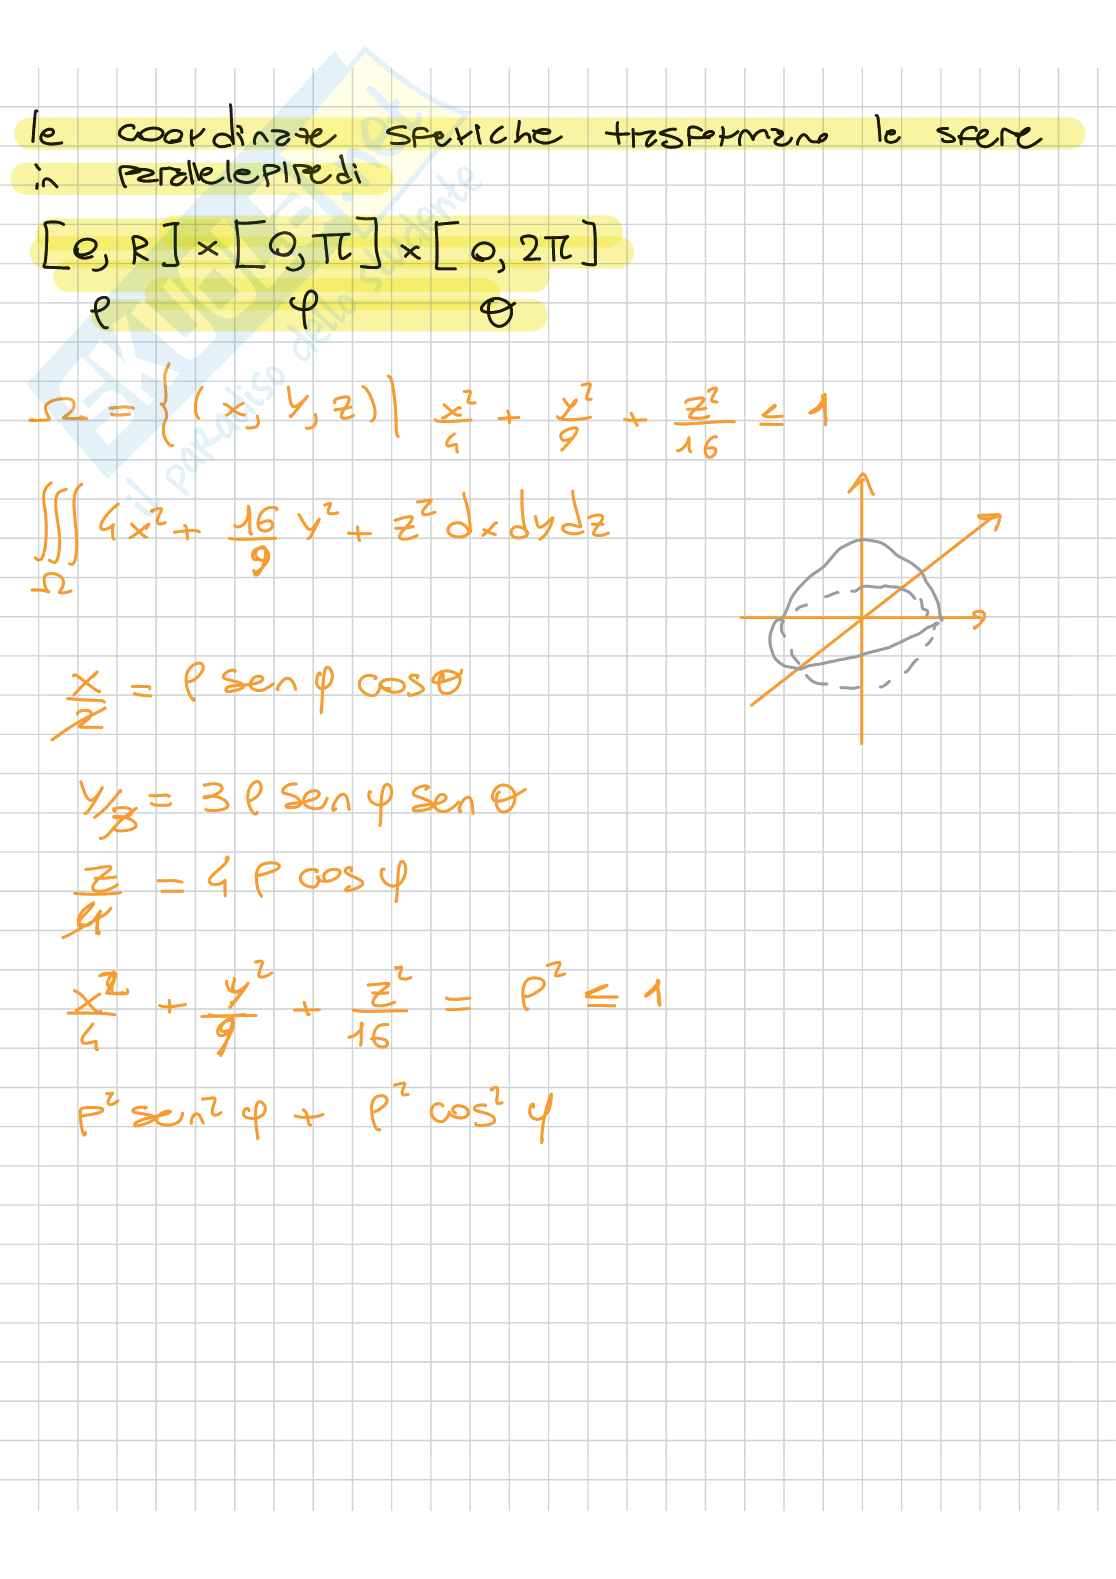 le coordinate sferiche trasformano le sfere
in parallelepipedi
[0, R] × [0, π] × [0, 2π]
ρ φ θ
Ω = { (x, y, z) | x²/4 + y²/9 + z²/16 ≤ 1
∭_Ω 4x² + 16/9 y² + z² dx dy dz
x/2 = ρ sen φ cos θ
y/3 = 3 ρ sen φ sen θ
z/4 = 4 ρ cos φ
x²/4 + y²/9 + z²/16 = ρ² ≤ 1
ρ² sen² φ + ρ² cos² φ
SKUOLA.net
il paradiso dello studente